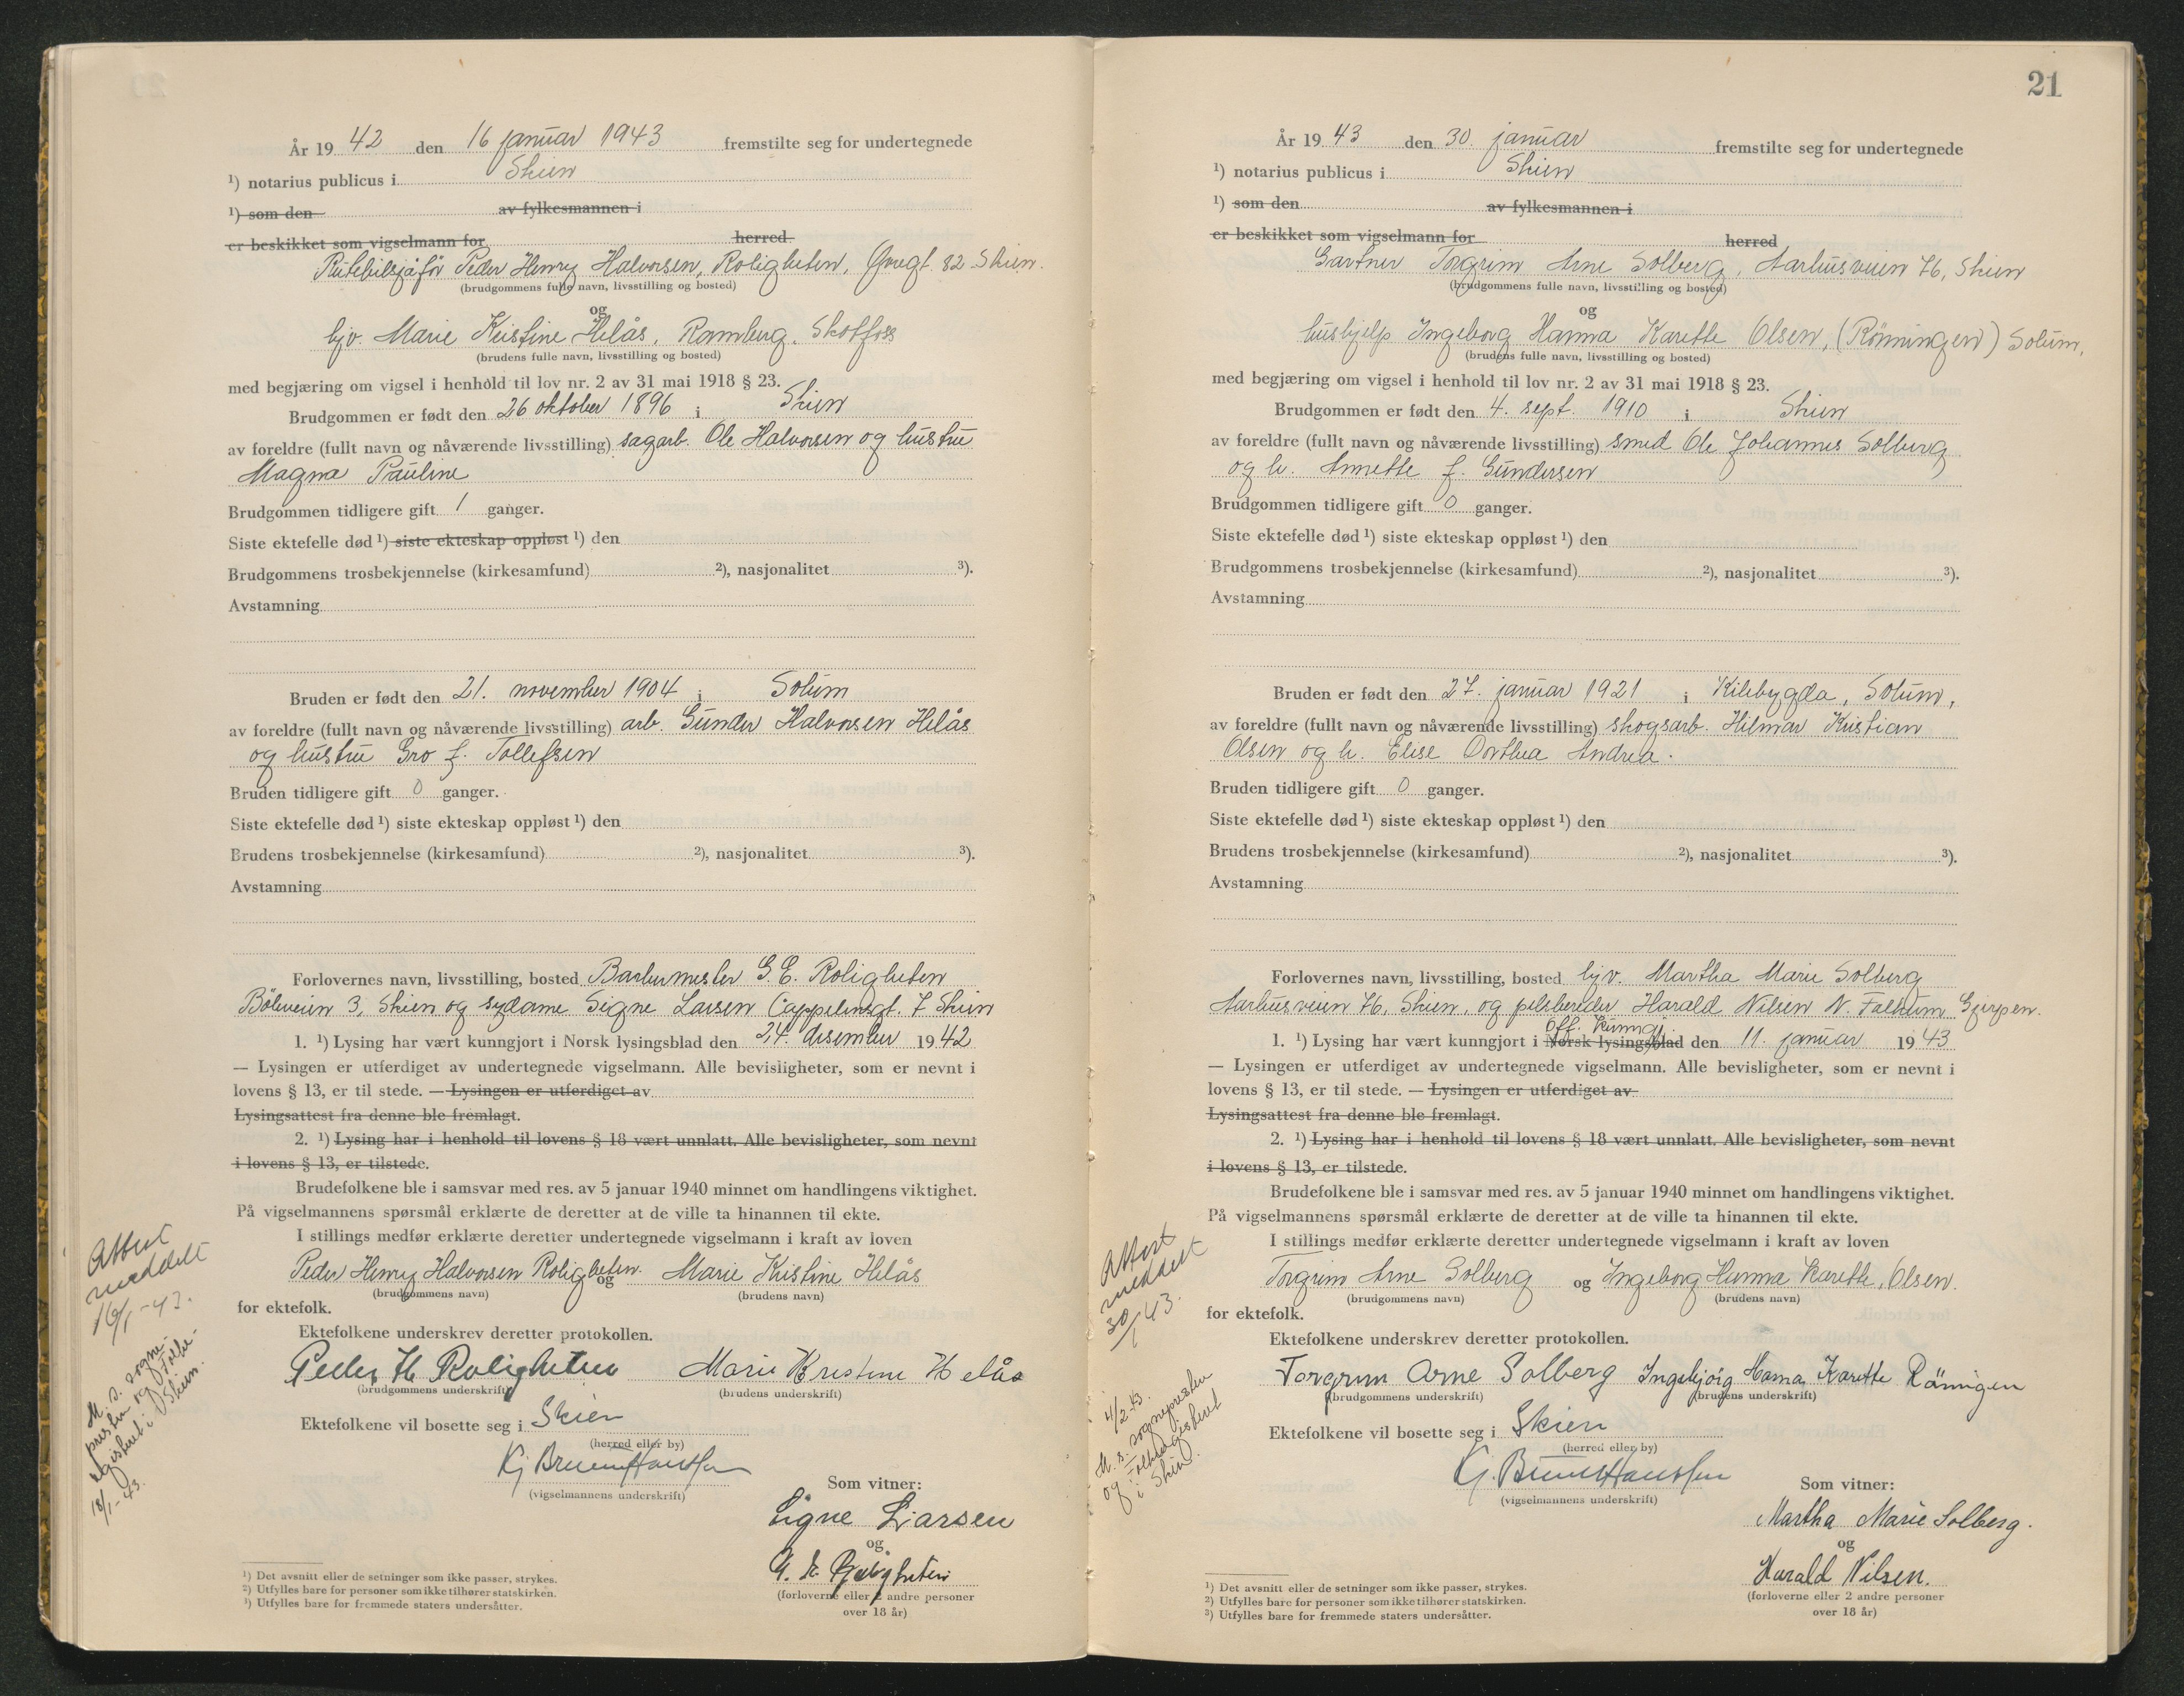 År 19 42 den 16 januar 1943 fremstilte seg for undertegnede
¹) notarius publicus i Skien
¹) som den av fylkesmannen i
er beskikket som vigselmann for herred
Rutebilsjåfør Peder Henry Halvorsen, Roligheten, Gvegt. 82 Skien.
(brudgommens fulle navn, livsstilling og bosted)
og
hjv. Marie Kristine Helås, Ramberg, Skotfoss
(brudens fulle navn, livsstilling og bosted)
med begjæring om vigsel i henhold til lov nr. 2 av 31 mai 1918 § 23.
Brudgommen er født den 26 oktober 1896 i Skien
av foreldre (fullt navn og nåværende livsstilling) sagarb. Ole Halvorsen og hustru
Magna Pauline
Brudgommen tidligere gift 1 ganger.
Siste ektefelle død ¹) siste ekteskap oppløst ¹) den
Brudgommens trosbekjennelse (kirkesamfund) ²), nasjonalitet ³).
Avstamning
Bruden er født den 21. november 1904 i Solum
av foreldre (fullt navn og nåværende livsstilling) arb. Gunder Halvorsen Helås
og hustru Gro f. Tollefsen
Bruden tidligere gift 0 ganger.
Siste ektefelle død ¹) siste ekteskap oppløst ¹) den
Brudens trosbekjennelse (kirkesamfund) ²), nasjonalitet ³).
Avstamning
Forlovernes navn, livsstilling, bosted Barbermester G. E. Roligheten
Bøleveien 3, Skien og sydame Signe Larsen Cappelensgt. 7 Skien
1. ¹) Lysing har vært kunngjort i Norsk lysingsblad den 24. desember 1942
— Lysingen er utferdiget av undertegnede vigselmann. Alle bevisligheter, som er nevnt i
lovens § 13, er til stede. — Lysingen er utferdiget av
Lysingsattest fra denne ble fremlagt.
2. ¹) Lysing har i henhold til lovens § 18 vært unnlatt. Alle bevisligheter, som nevnt
i lovens § 13, er tilstede.
Brudefolkene ble i samsvar med res. av 5 januar 1940 minnet om handlingens viktighet.
På vigselmannens spørsmål erklærte de deretter at de ville ta hinannen til ekte.
I stillings medfør erklærte deretter undertegnede vigselmann i kraft av loven
Peder Henry Halvorsen Roligheten og Marie Kristine Helås
(brudgommens navn) (brudens navn)
for ektefolk.
Ektefolkene underskrev deretter protokollen.
Peder H Roligheten Marie Kristine Helås
(brudgommens underskrift) (brudens underskrift)
Ektefolkene vil bosette seg i Skien
(herred eller by)
Kj Bruun Hanssen
(vigselmannens underskrift)
Som vitner:
Signe Larsen
og
G. E. Roligheten
(forloverne eller 2 andre personer
over 18 år)
¹) Det avsnitt eller de setninger som ikke passer, strykes.
²) Utfylles bare for personer som ikke tilhører statskirken.
³) Utfylles bare for fremmede staters undersåtter.
Attest
meddelt
16/1-43.
M. s. sogne-
presten og folke-
registeret i Skien.
18/1-43.
21
År 19 43 den 30. januar fremstilte seg for undertegnede
¹) notarius publicus i Skien
¹) som den av fylkesmannen i
er beskikket som vigselmann for herred
Gartner Torgrim Arne Solberg, Aarhusveien 76, Skien
(brudgommens fulle navn, livsstilling og bosted)
og
hushjelp Ingeborg Hanna Karette Olsen, (Rønningen) Solum,
(brudens fulle navn, livsstilling og bosted)
med begjæring om vigsel i henhold til lov nr. 2 av 31 mai 1918 § 23.
Brudgommen er født den 4. sept. 1910 i Skien
av foreldre (fullt navn og nåværende livsstilling) smed Ole Johannes Solberg
og h. Annette f. Gundersen
Brudgommen tidligere gift 0 ganger.
Siste ektefelle død ¹) siste ekteskap oppløst ¹) den
Brudgommens trosbekjennelse (kirkesamfund) ²), nasjonalitet ³).
Avstamning
Bruden er født den 27. januar 1921 i Kilebygda, Solum,
av foreldre (fullt navn og nåværende livsstilling) skogsarb. Hilmar Kristian
Olsen og h. Elise Dorthea Andrea.
Bruden tidligere gift 0 ganger.
Siste ektefelle død ¹) siste ekteskap oppløst ¹) den
Brudens trosbekjennelse (kirkesamfund) ²), nasjonalitet ³).
Avstamning
Forlovernes navn, livsstilling, bosted hjv. Martha Marie Solberg
Aarhusveien 76, Skien, og pelsbereder Harald Nilsen N. Falkum Gjerpen.
Off. kunngj.
1. ¹) Lysing har vært kunngjort i Norsk lysingsblad den 11. januar 1943
— Lysingen er utferdiget av undertegnede vigselmann. Alle bevisligheter, som er nevnt i
lovens § 13, er til stede. — Lysingen er utferdiget av
Lysingsattest fra denne ble fremlagt.
2. ¹) Lysing har i henhold til lovens § 18 vært unnlatt. Alle bevisligheter, som nevnt
i lovens § 13, er tilstede.
Brudefolkene ble i samsvar med res. av 5 januar 1940 minnet om handlingens viktighet.
På vigselmannens spørsmål erklærte de deretter at de ville ta hinannen til ekte.
I stillings medfør erklærte deretter undertegnede vigselmann i kraft av loven
Torgrim Arne Solberg og Ingeborg Hanna Karette, Olsen.
(brudgommens navn) (brudens navn)
for ektefolk.
Ektefolkene underskrev deretter protokollen.
Torgrim Arne Solberg Ingebjørg Hanna Karette Rønnigen
(brudgommens underskrift) (brudens underskrift)
Ektefolkene vil bosette seg i Skien
(herred eller by)
Kj. Bruun Hanssen
(vigselmannens underskrift)
Som vitner:
Martha Marie Solberg.
og
Harald Nilsen.
(forloverne eller 2 andre personer
over 18 år)
¹) Det avsnitt eller de setninger som ikke passer, strykes.
²) Utfylles bare for personer som ikke tilhører statskirken.
³) Utfylles bare for fremmede staters undersåtter.
Attest
meddelt
30/1 43.
4/2-43.
M. s. sognepresten
og folkeregisteret
i Skien.